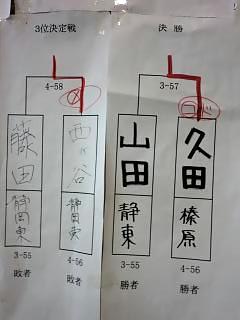 3位決定戦
4-58
藤田
静岡東
3-55
敗者
西ヶ谷
静岡東
4-56
敗者
決勝
3-57
山田
静東
3-55
勝者
久田
榛原
4-56
勝者